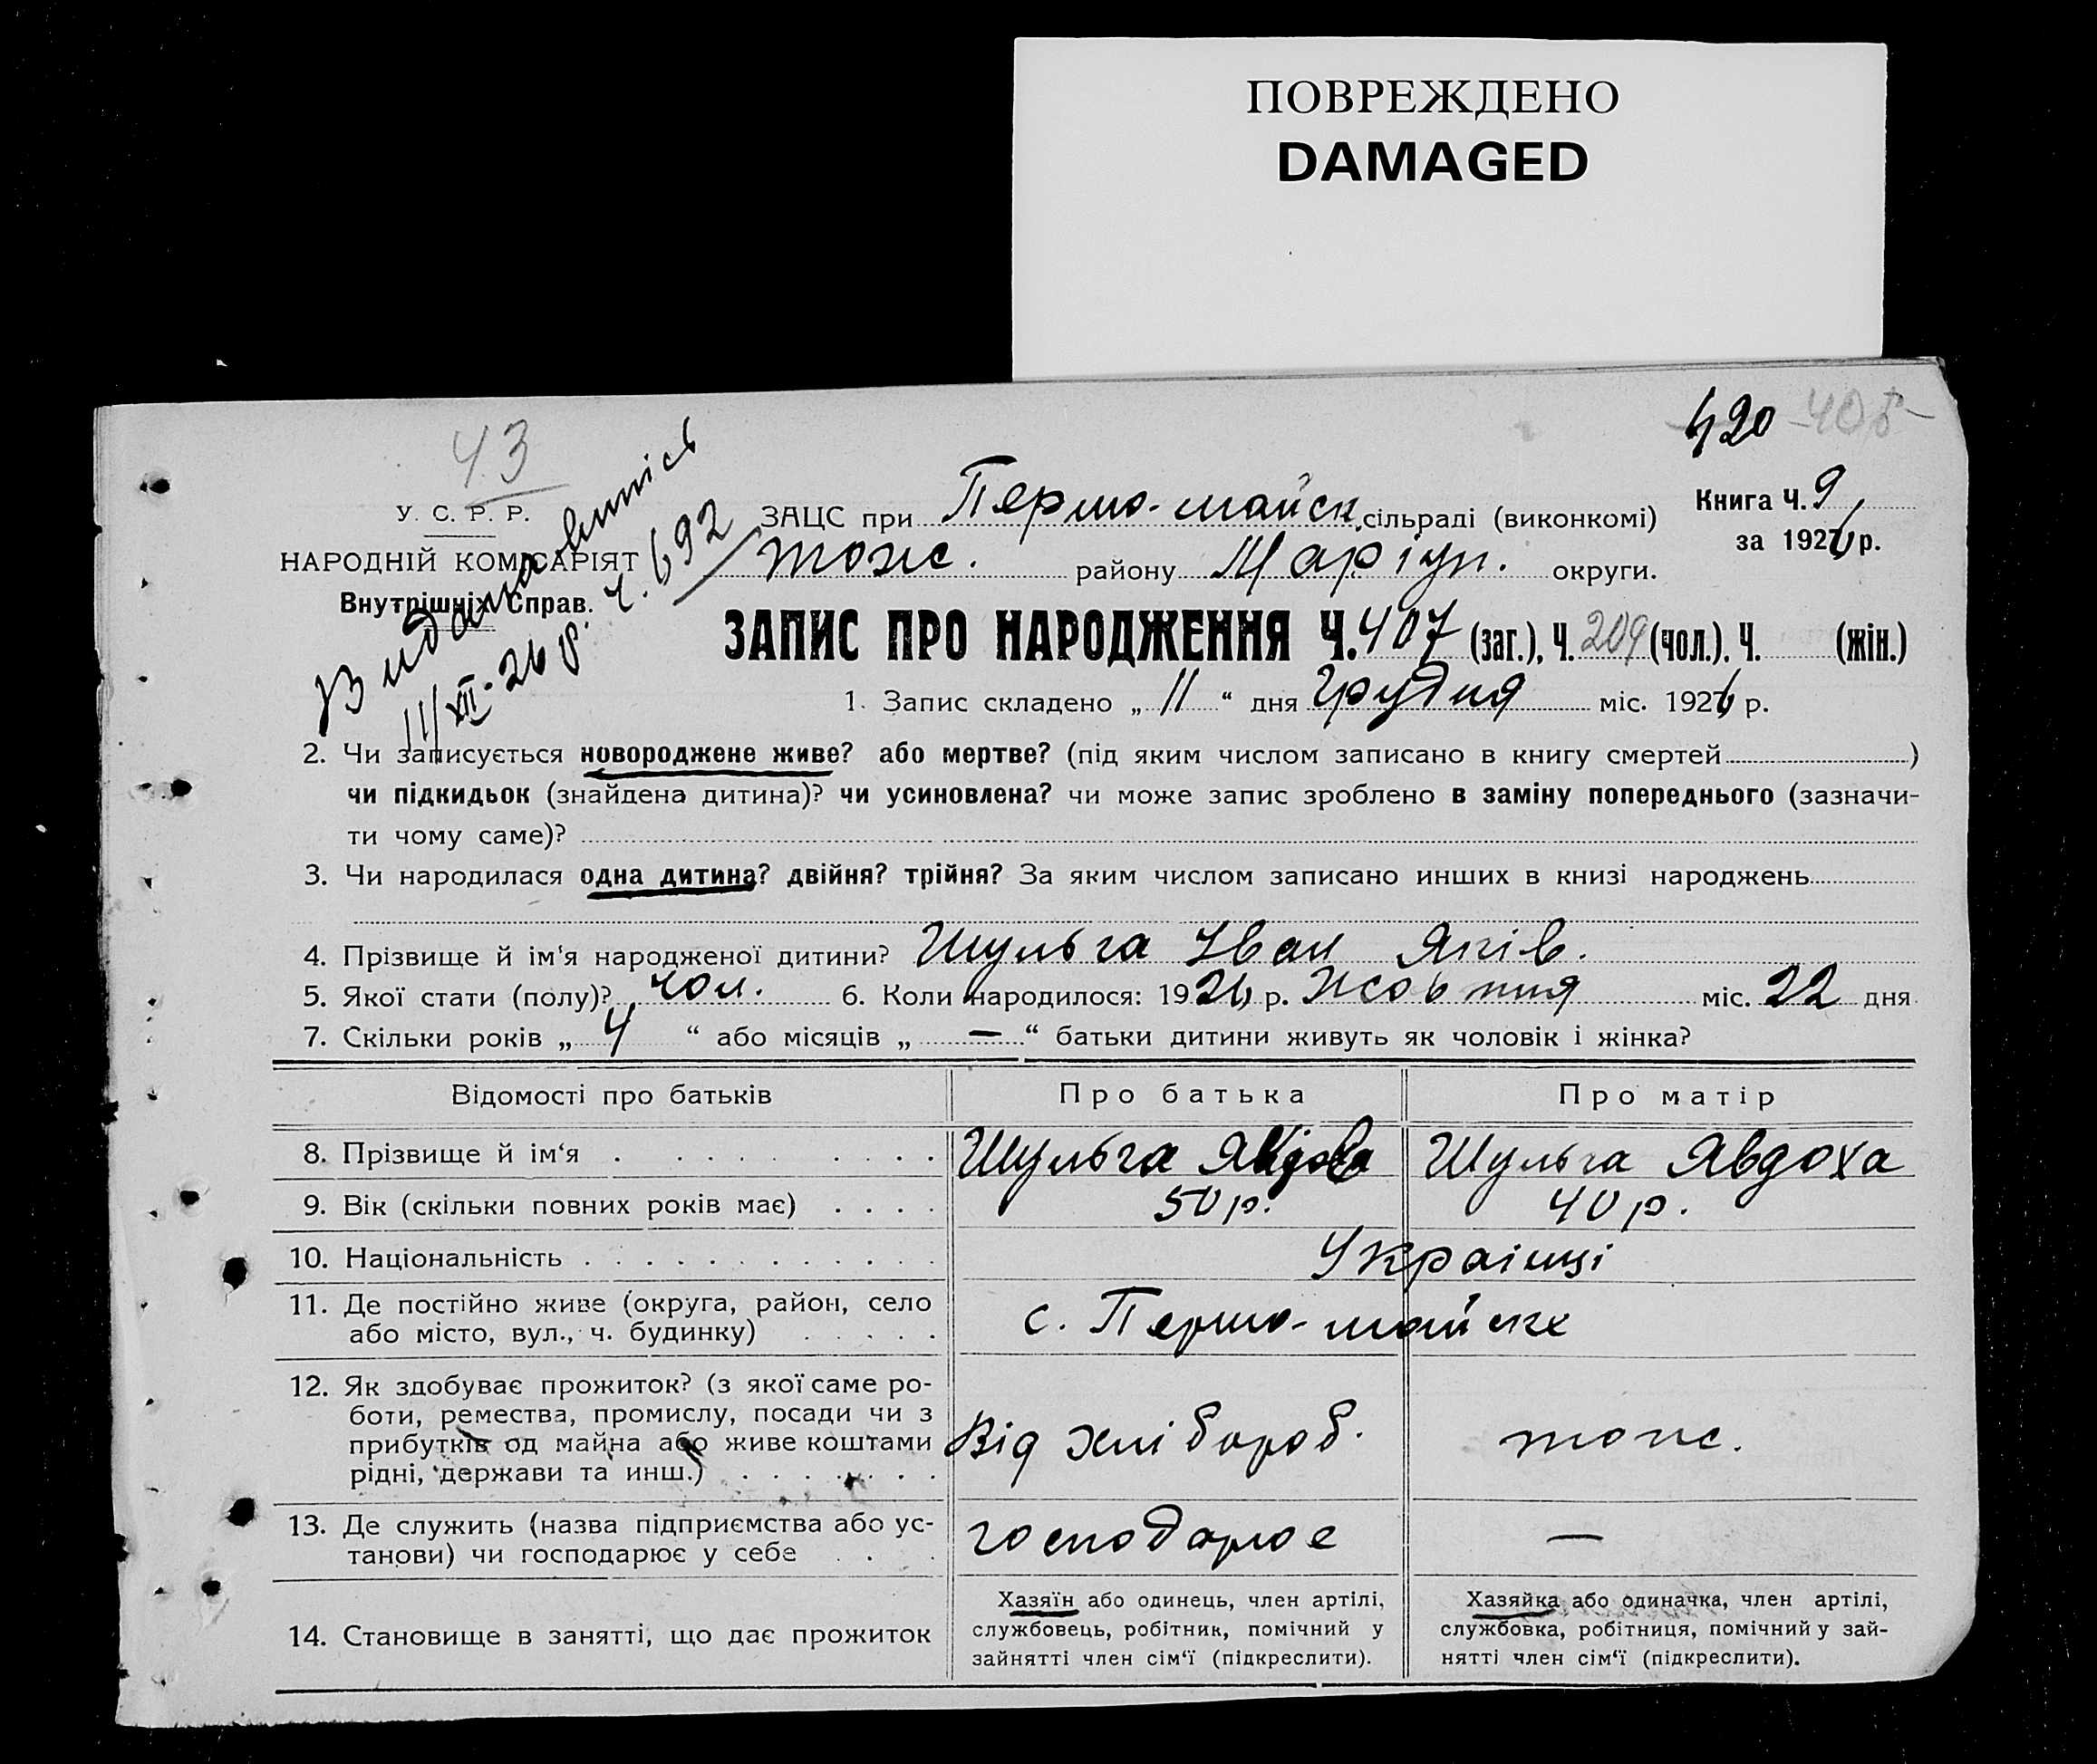 ПОВРЕЖДЕНО
DAMAGED
420 405
43
У. С. Р. Р.
НАРОДНІЙ КОМІСАРІЯТ
Внутрішніх Справ.
Видана
11/XII-26 р. ч. 692
ЗАЦС при Перто-майськ. сільраді (виконкомі)
тоже. району Маріуп. округи.
Книга Ч. 9
за 1926 р.
ЗАПИС ПРО НАРОДЖЕННЯ Ч. 407 (заг.), Ч. 209 (чол.). Ч. (жін.)
1. Запис складено „ 11 “ дня Грудня міс. 1926 р.
2. Чи записується новороджене живе? або мертве? (під яким числом записано в книгу смертей )
чи підкидьок (знайдена дитина)? чи усиновлена? чи може запис зроблено в заміну попереднього (зазначи-
ти чому саме)?
3. Чи народилася одна дитина? двійня? трійня? За яким числом записано инших в книзі народжень
4. Прізвище й ім‘я народженої дитини? Шульга Іван Яків.
5. Якої стати (полу)? чол. 6. Коли народилося: 1926 р. Жовтня міс. 22 дня
7. Скільки років „ 4 “ або місяців „ — “ батьки дитини живуть як чоловік і жінка?
Відомості про батьків Про батька Про матір
8. Прізвище й ім‘я Шульга Яків Шульга Явдоха
9. Вік (скільки повних років має) 50 р. 40 р.
10. Національність Українці
11. Де постійно живе (округа, район, село
або місто, вул., ч. будинку) с. Перто-майське
12. Як здобуває прожиток? (з якої саме ро-
боти, ремества, промислу, посади чи з
прибутків од майна або живе коштами
рідні, держави та инш.) Від хлібороб. тоже.
13. Де служить (назва підприємства або ус-
танови) чи господарює у себе господарює —
14. Становище в занятті, що дає прожиток
Хазяїн або одинець, член артілі,
службовець, робітник, помічний у
зайнятті член сім‘ї (підкреслити).
Хазяйка або одиначка, член артілі,
службовка, робітниця, помічний у зай-
нятті член сім‘ї (підкреслити).